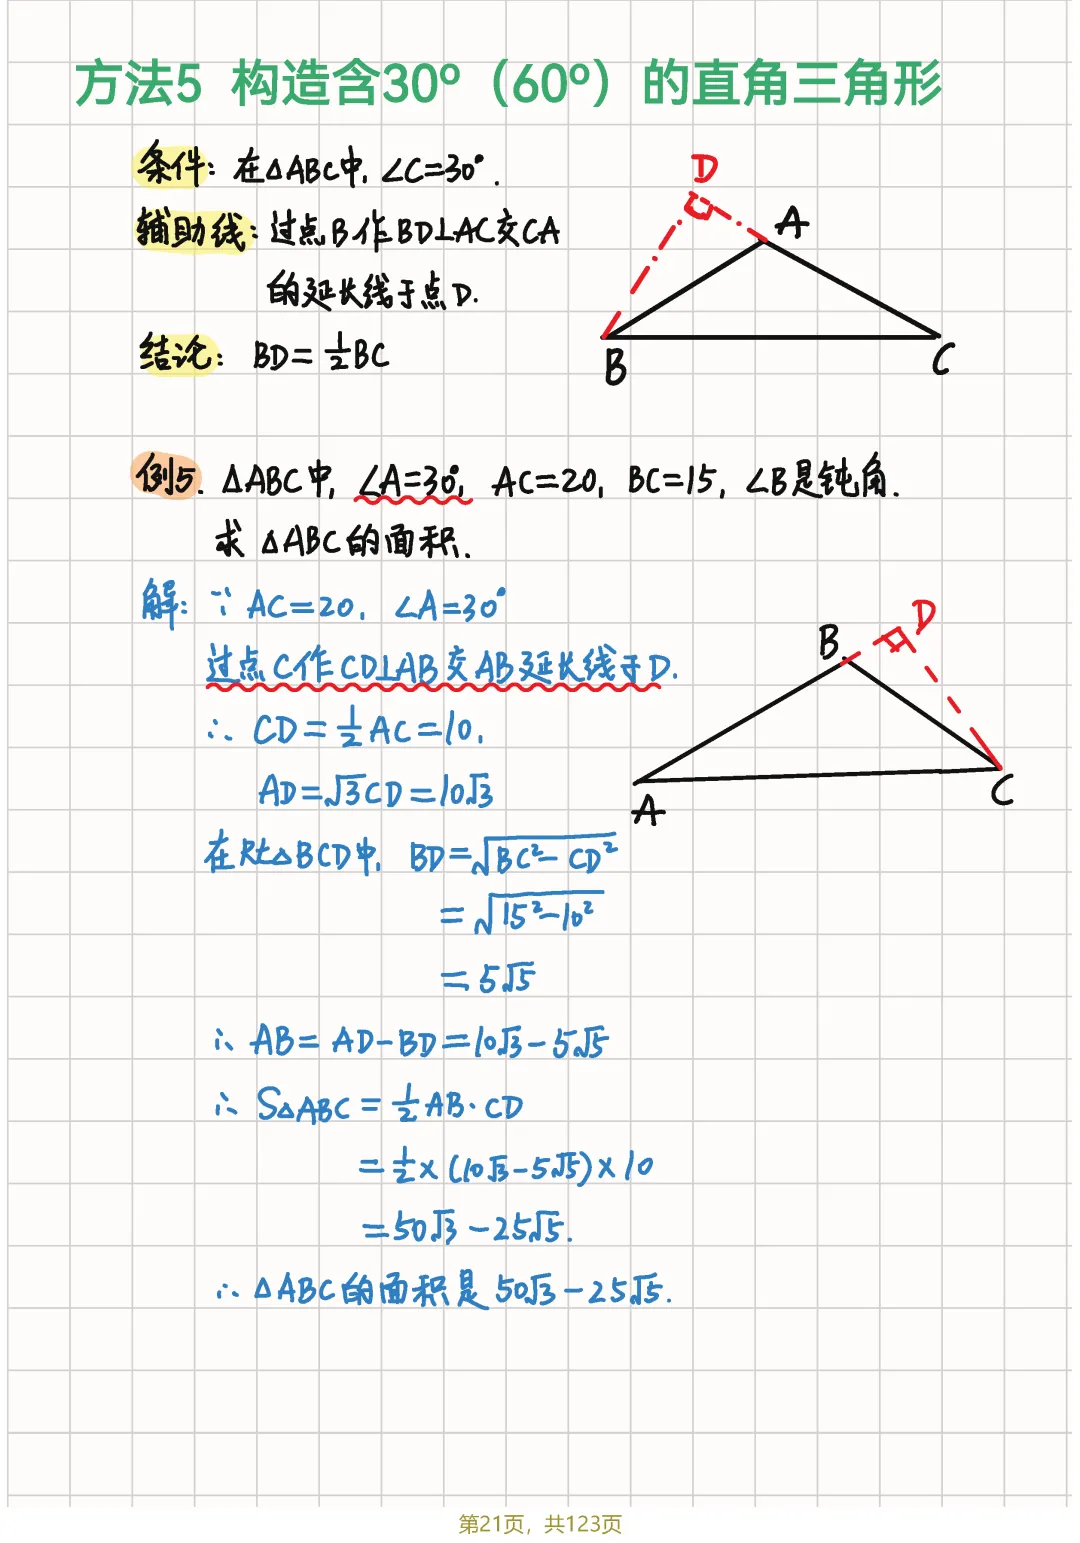 方法5 构造含30°（60°）的直角三角形
条件：在△ABC中，∠C=30°.
辅助线：过点B作BD⊥AC交CA
的延长线于点D.
结论：BD=½BC
D
A
B
C
例5. △ABC中，∠A=30°，AC=20，BC=15，∠B是钝角.
求△ABC的面积.
解：∵ AC=20，∠A=30°
过点C作CD⊥AB交AB延长线于D.
∴ CD=½AC=10，
AD=√3CD=10√3
B
D
A
C
在Rt△BCD中，BD=√(BC²-CD²)
=√(15²-10²)
=5√5
∴ AB=AD-BD=10√3-5√5
∴ S△ABC=½AB·CD
=½×(10√3-5√5)×10
=50√3-25√5.
∴ △ABC的面积是50√3-25√5.
第21页，共123页